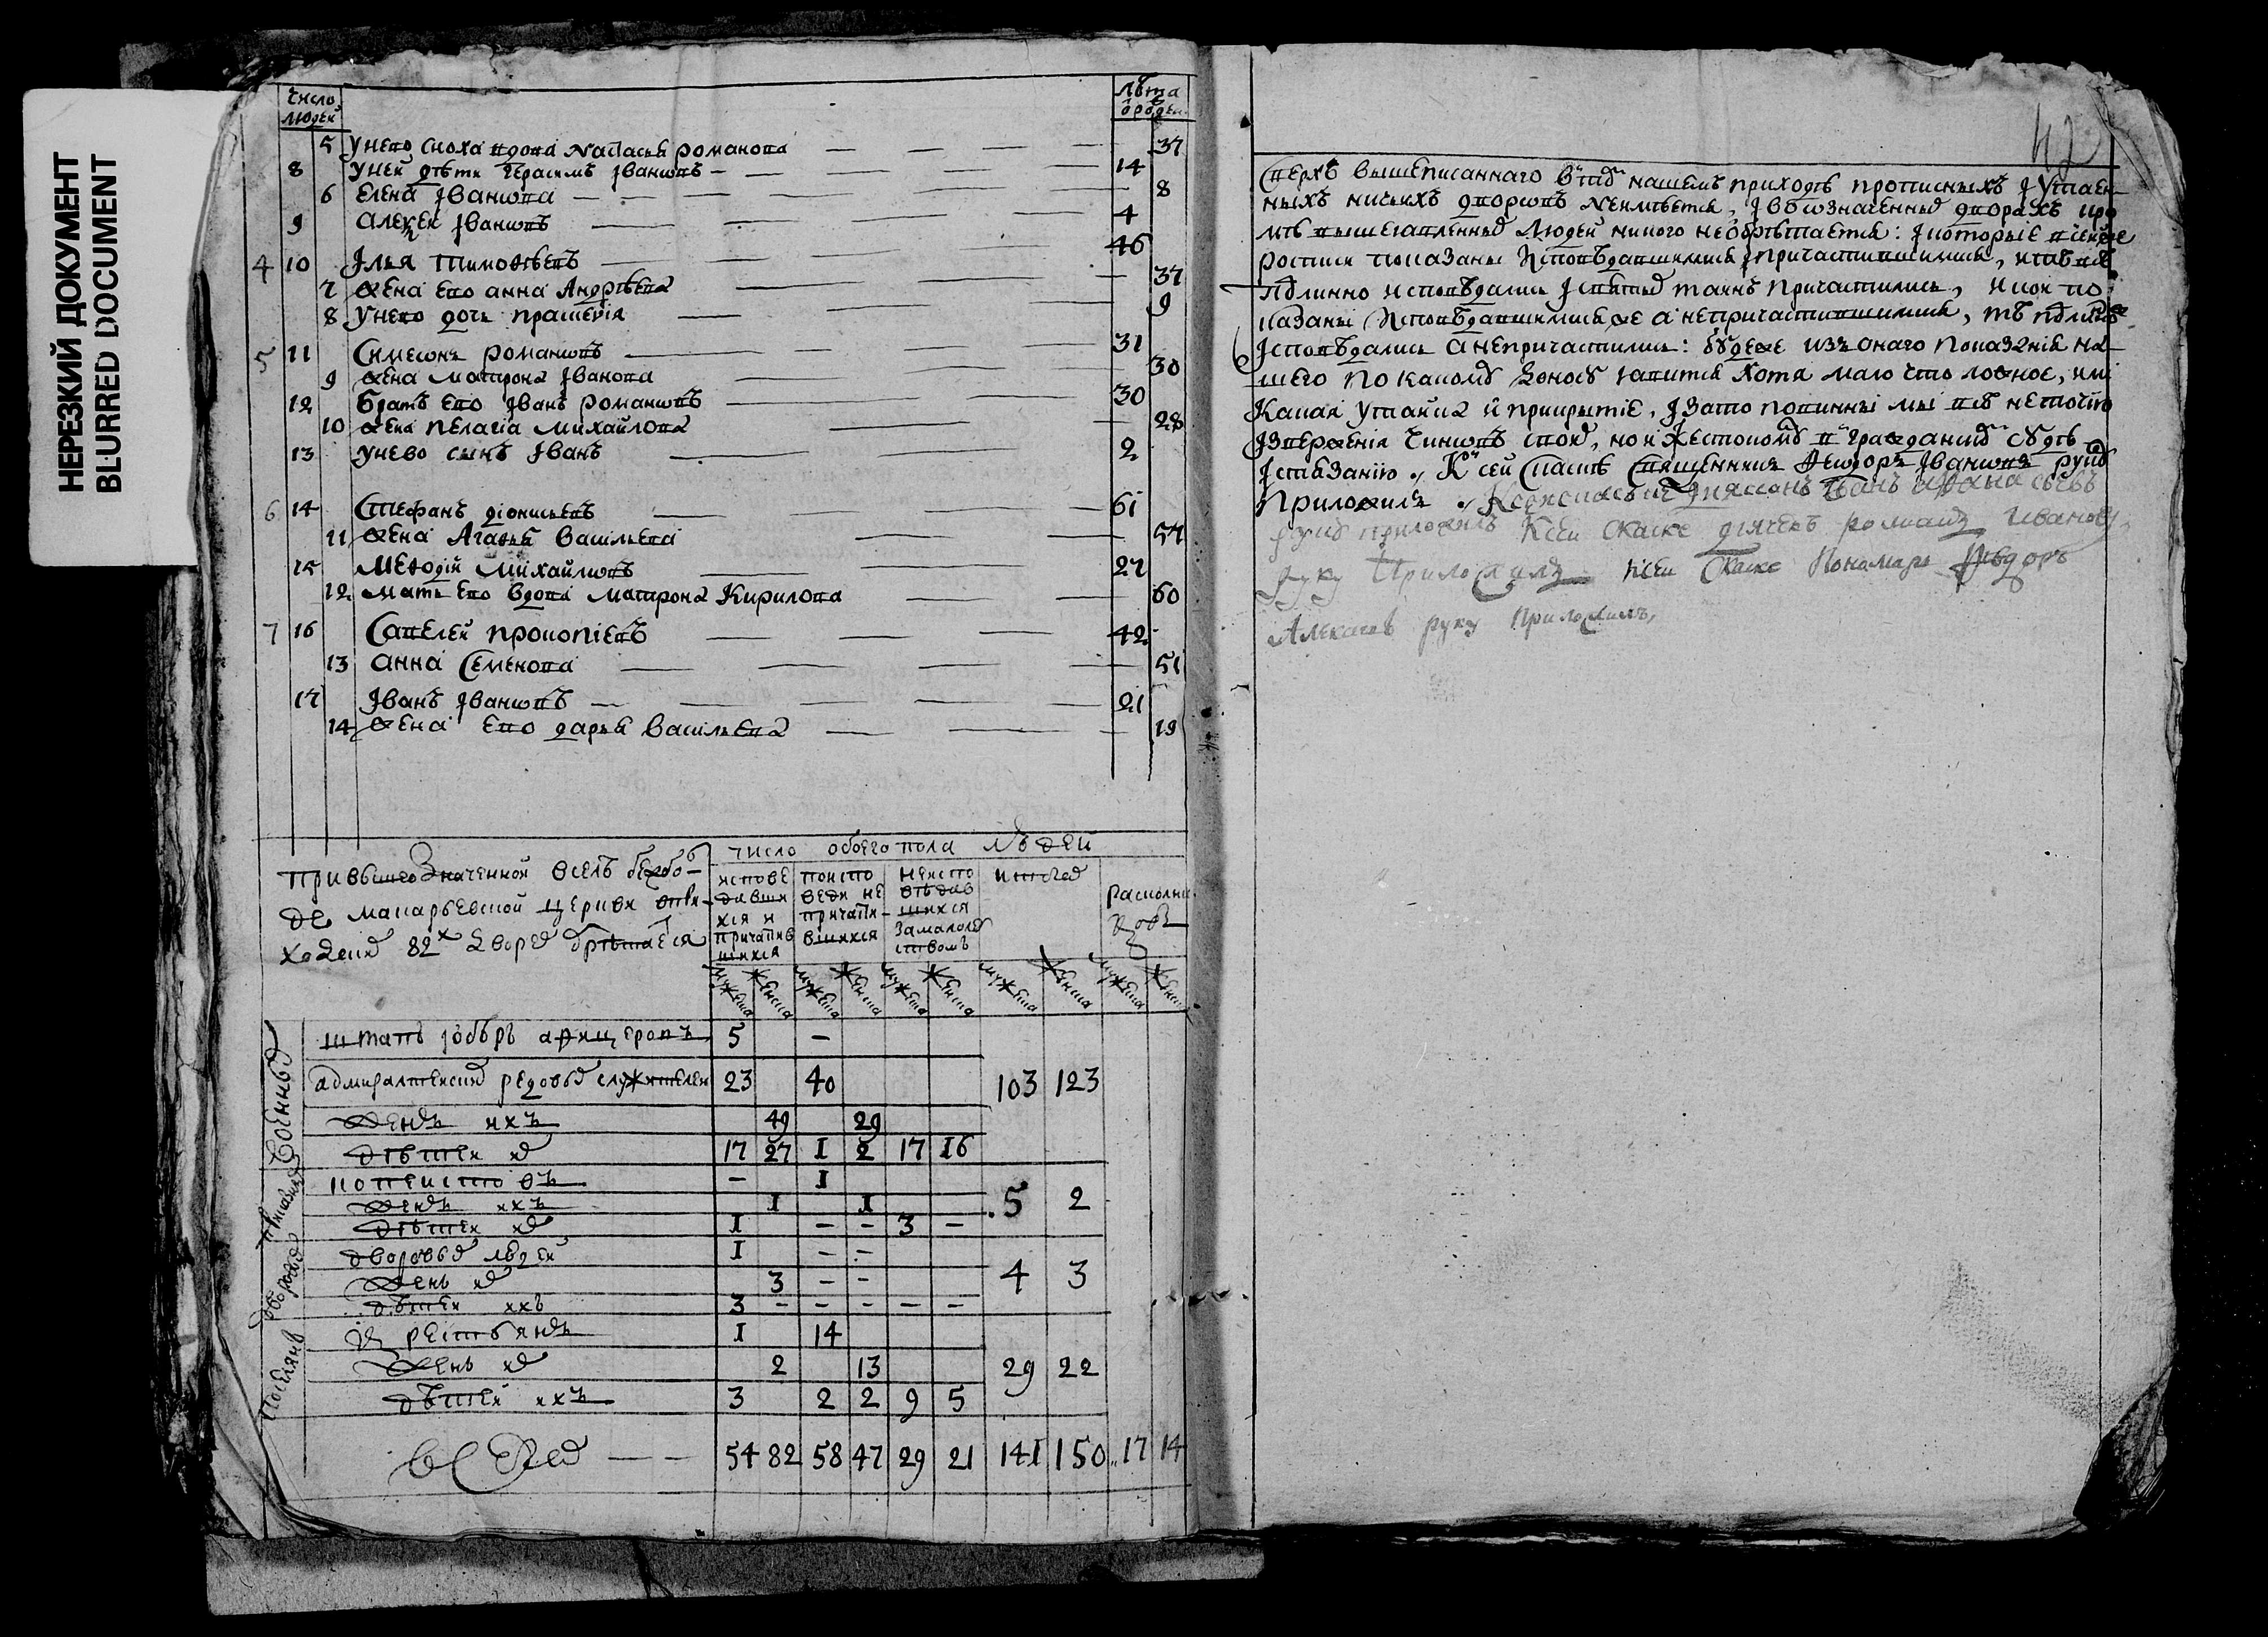 НЕРЕЗКИЙ ДОКУМЕНТ
BLURRED DOCUMENT
Число людей
Лѣта
5 У него сноха вдова Настасья Романова 37
8 У ней дѣти Герасимъ Їванѡвъ 14
6 Елена Їванѡва 8
9 Алеѯей Їванѡвъ 4
4 10 Їлья Тимоѳѣевъ 46
7 Жена ево Анна Андрѣева 37
8 У него дочь Праѕковїя 9
5 11 Симеѡнъ Романѡвъ 31
9 Жена Матрона Їванова 30
12 Братъ ево Їванъ Романѡвъ 30
10 Жена Пелагїа Михайлова 28
13 У нево сынъ Їванъ 2
6 14 Стефанъ Дїонисьевъ 61
11 Жена Агаѳья Васильева 57
15 Меѳодїй Михайлѡвъ 27
12 Мать ево вдова Матрона Кирилова 60
7 16 Савелей Прокопїевъ 42
13 Анна Семенова 51
17 Їванъ Їванѡвъ 21
14 Жена ево Дарья Васильева 19
При вышеозначенной вселъ
Макарьевской церкви
82х дворех обрѣтается
число обоего пола людей
исповедавшихся и причастившихся
по исповеди не причастившихся
не исповѣдавшихся за малолетствомъ
итого
расколниковъ
мужеска женска мужеска женска мужеска женска мужеска женска мужеска женска
военных
штапъ їобѣръ афицеровъ 5 –
адмиралтейских редовых служителей 23 40 103 123
женъ ихъ 49 29
дѣтей их 17 27 1 2 17 16
– 1
женъ ихъ 1 1 5 2
дѣтей их 1 – – 3 –
дворовых
дворовых людей 1 – –
женъ их 3 – – 4 3
дѣтей ихъ 3 – – – – –
поселянъ
крестьянъ 1 14
женъ их 2 13 29 22
дѣтей ихъ 3 2 2 9 5
всего 54 82 58 47 29 21 141 150 17 14
42
Сверхъ вышеписаннаго въ томъ нашемъ приходѣ прописныхъ ї утаен-
ныхъ ничьихъ дворѡвъ не имѣется, ї в ѡзначенных дворахъ кро
мѣ вышеявленных людей никого не обрѣтается: ї которые в сей же
росписи показаны исповѣдавшимися ї причастившимися, и тѣ всѣ
подлинно исповѣдались ї святых таинъ причастились, и кои по
казаны исповѣдавшимися же а не причастившимися, тѣ подлинно
їсповѣдались а не причастились: будеже изъ онаго показанїя на-
шего по какому доносу явится хотя мало что ложное, или
какая утайка и прикрытїе, ї за то повинны мы всѣ не точїю
їзверженїя чинѡвъ своих, но и жестокому в гражданском судѣ
їстязанїю. К сей скаскѣ священникъ Ѳеѡдоръ Їванѡвъ руку
приложилъ. К сей скаске дияконъ Иванъ
руку приложилъ К сеи скаске дьячекъ Романъ Иванов
руку приложилъ К сеи скаске пономарь Ѳедоръ
Алексеевъ руку приложилъ